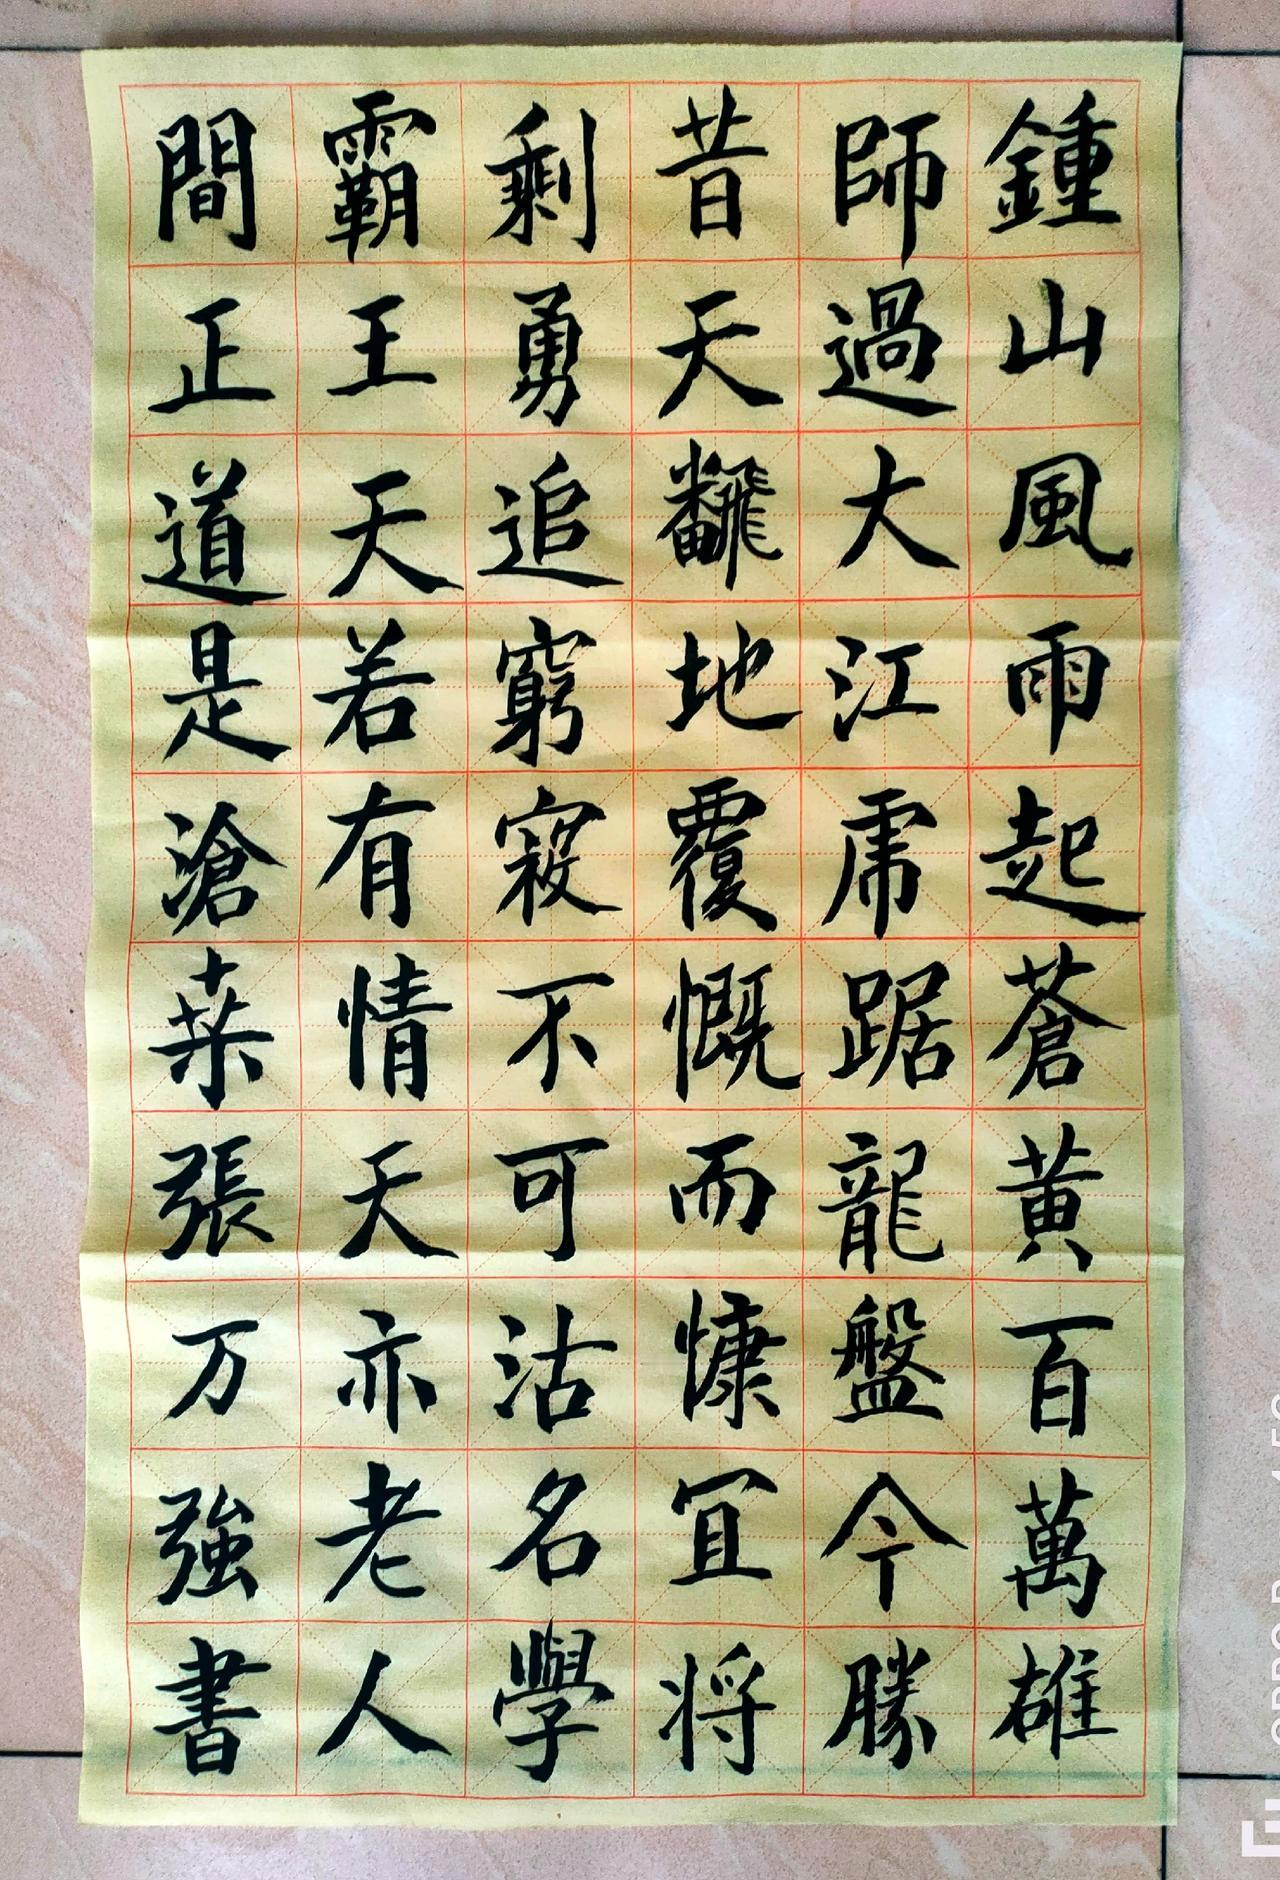 鍾山風雨起蒼黃百萬雄
師過大江虎踞龍盤今勝
昔天飜地覆慨而慷宜将
剩勇追窮寇不可沽名學
霸王天若有情天亦老人
間正道是滄桒張万強書